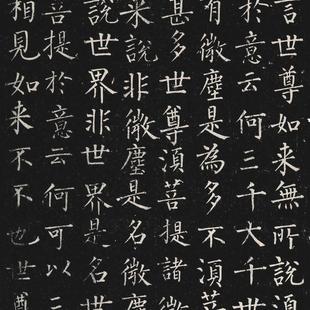 言世尊如来無所說湏
於意云何三千大千世
有微塵是為多不湏菩
甚多世尊湏菩提諸微
来說非微塵是名微塵
說世界非世界是名世
菩提於意云何可以三
相見如来不不也世尊